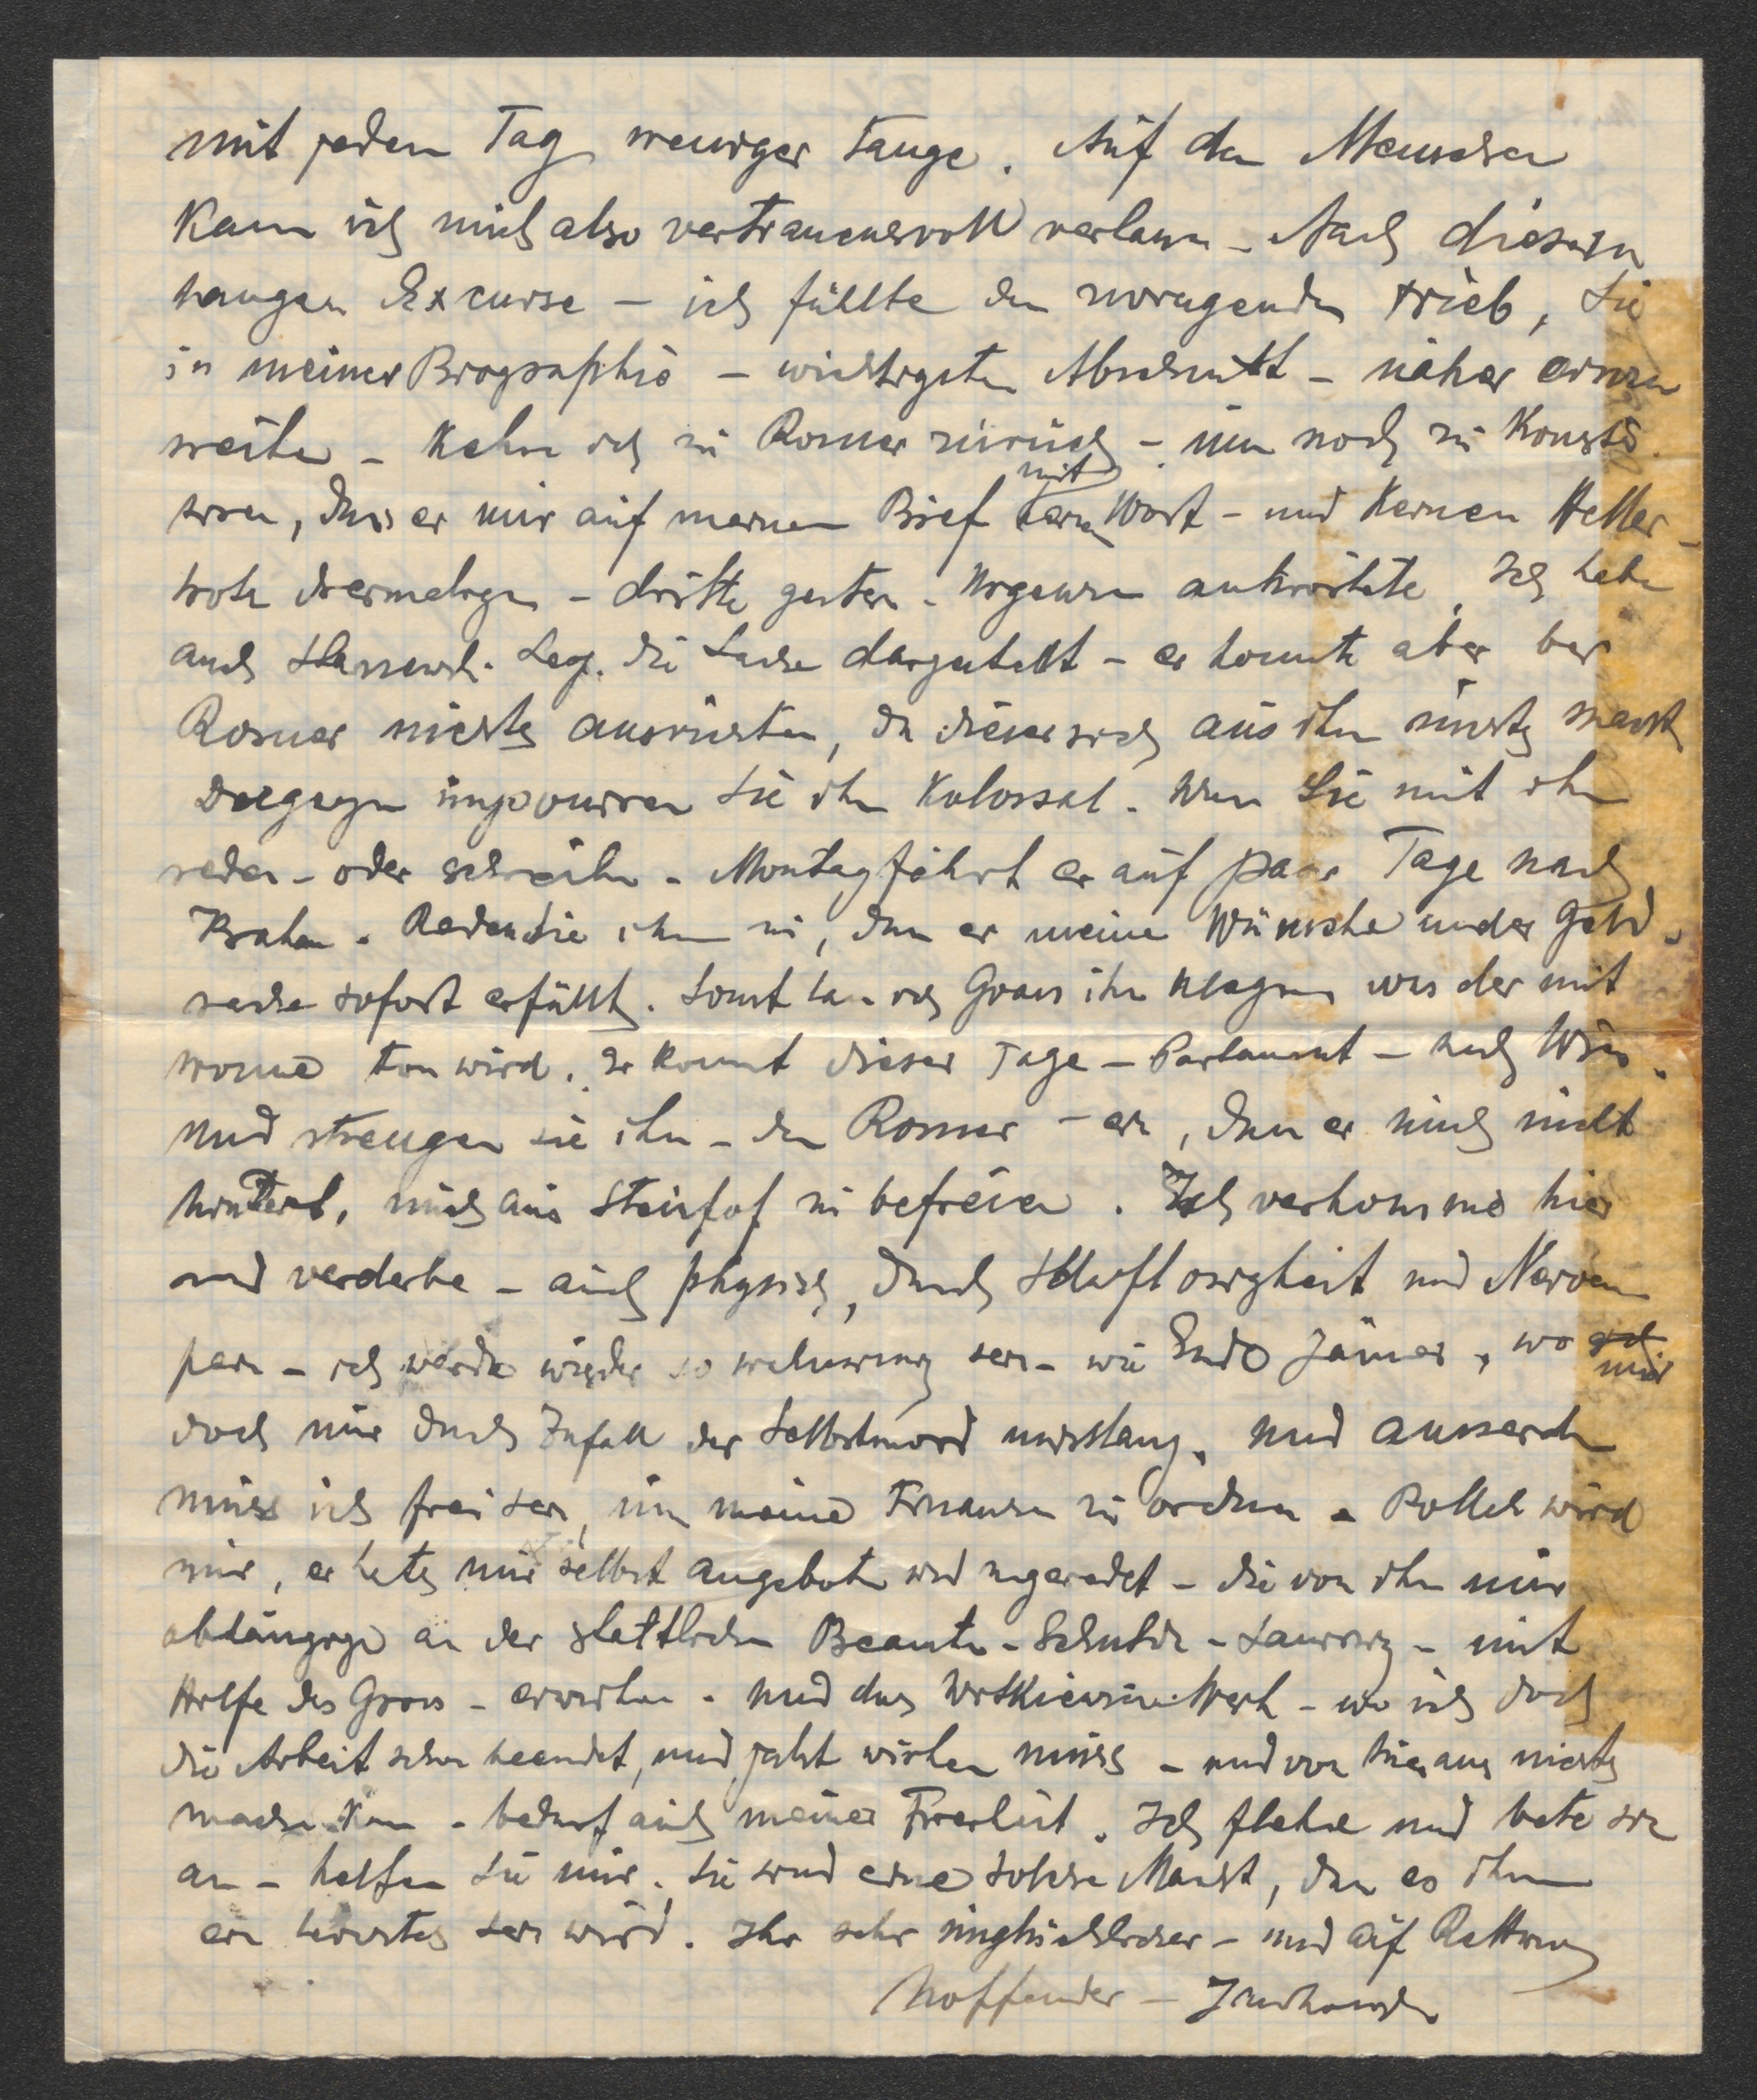 mit jedem Tag weniger tauge. Auf den Menschen
kann ich mich also vertrauensvoll verlassen – Nach diesem
langen Excurse – ich fühlte den zwingenden Trieb, Sie
in meiner Biographie – wichtigsten Abschnitt – näher einzu
weihen – kehre ich zu Rosner zurück – um noch zu konsta
tiren, dass er mir auf meinen Brief mit Wort – und keinen Heller
trotz dreimaligen – dritte gestern – Urgenzen antwortete. Ich habe
auch Leop. die Sache dargestellt – er konnte aber bei
Rosner nichts ausrichten, da dieser sich aus ihm nichts macht
Dagegen imponiren Sie ihm kolossal. Wenn Sie mit ihm
reden – oder schreiben – Montag fährt er auf paar Tage nach
Krakau. Reden Sie ihm zu, dass er meine Wünsche in der Geld
sache sofort erfüllt. Sonst lass ich Gross ihn klagen was der mit
Wonne tun wird. Er kommt dieser Tage – Parlament – nach Wien.
Und strengen Sie ihn – den Rosner – an, dass er mich nicht
hindert, mich aus Steinhof zu befreien. Ich verkomme hier
und verderbe – auch physisch, durch Schlaflosigkeit und Nerven
pein – ich werde wieder so wahnsinnig sein – wie Ende Jänner, wo ich mir
doch nur durch Zufall der Selbstmord misslang. Und ausserdem
muss ich frei sein, um meine Finanzen zu ordnen – wird
mir, er hats mir selbst angeboten und zugeredet – die von ihm nur
abhängige an der stattlichen – mit
Hilfe des Gross – erwirken. Und das Witkiewicz Werk – wo ich doch
die Arbeit schon beendet, und jetzt wirken muss – und von hier aus nichts
machen kann – bedarf auch meiner Freiheit. Ich flehe und bete Sie
an – helfen Sie mir. Sie sind eine solche Macht, dass es Ihnen
ein Leichtes sein wird. Ihr sehr unglücklicher – und auf Rettung
hoffender –